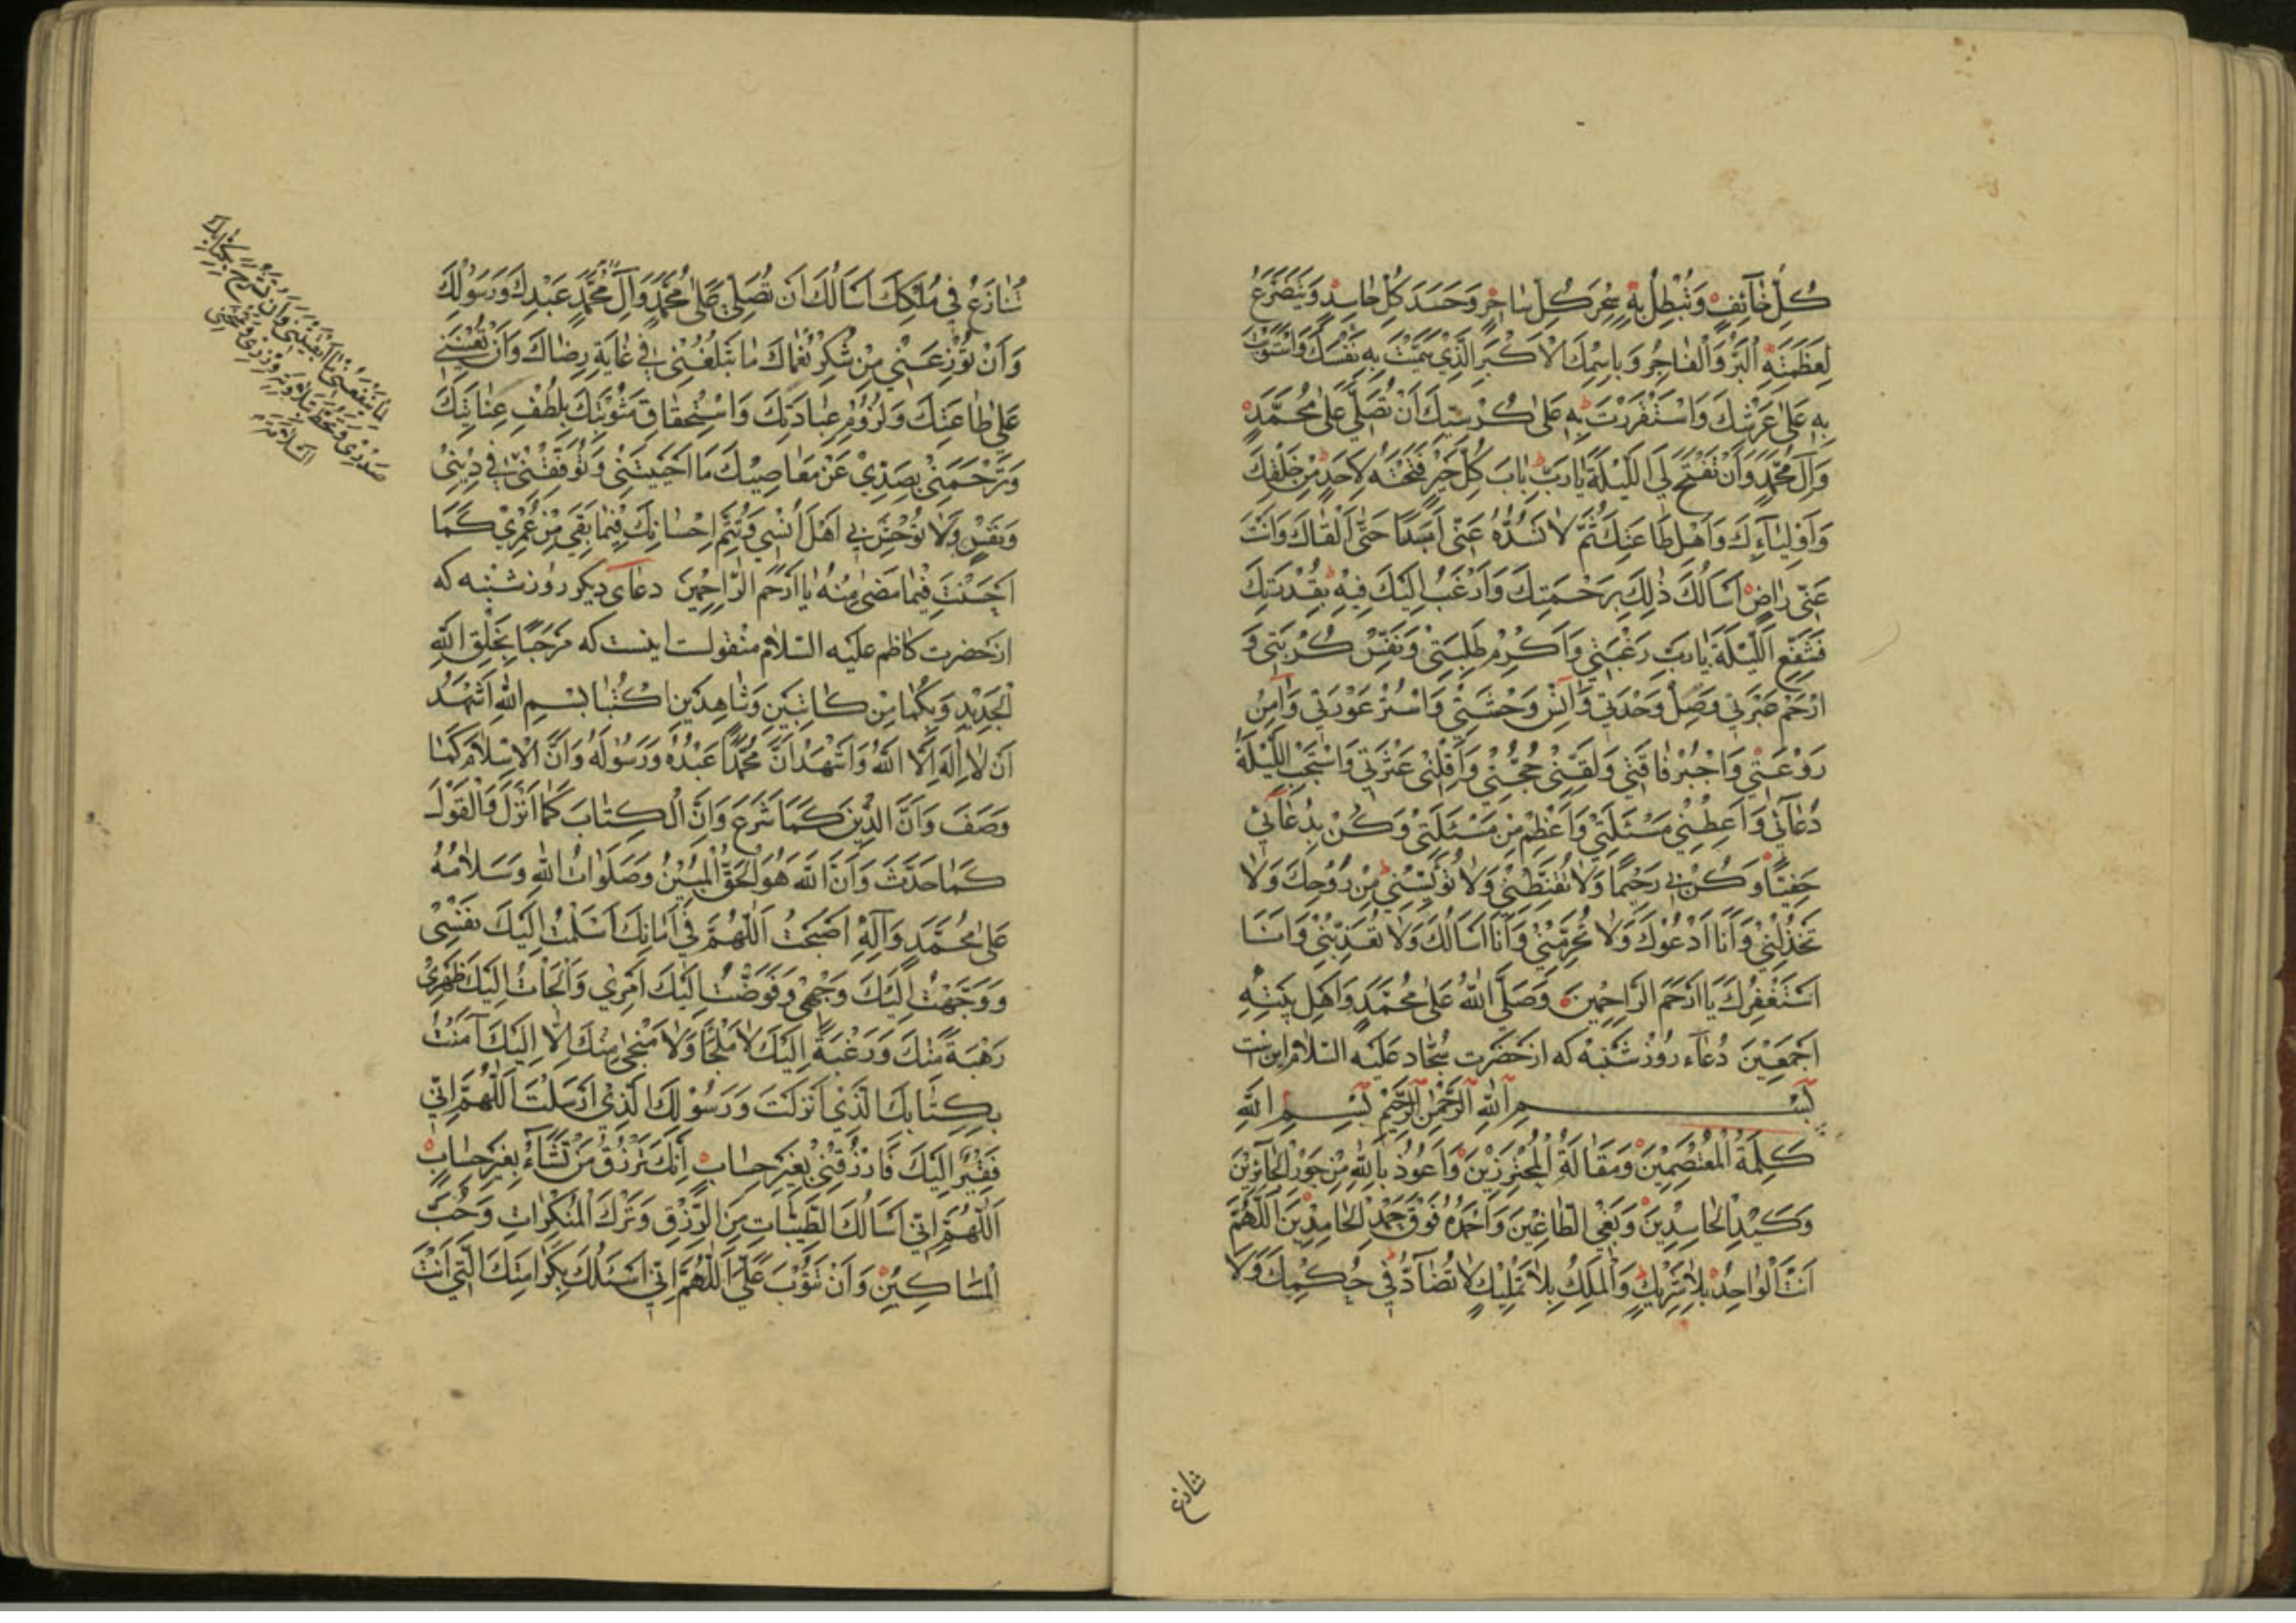 كُلِّ خَائِفٍ وَتُبْطِلُ بِهِ سِحْرَ كُلِّ سَاحِرٍ وَحَسَدَ كُلِّ حَاسِدٍ وَيَتَضَرَّعُ
لِعَظَمَتِهِ الْبَرُّ وَالْفَاجِرُ وَبِاسْمِكَ الْاَكْبَرِ الَّذِي سَمَّيْتَ بِهِ نَفْسَكَ وَاسْتَوَيْتَ
بِهِ عَلَى عَرْشِكَ وَاسْتَقْرَرْتَ بِهِ عَلَى كُرْسِيِّكَ اَنْ تُصَلِّيَ عَلَى مُحَمَّدٍ
وَآلِ مُحَمَّدٍ وَاَنْ تَفْتَحَ لِيَ اللَّيْلَةَ يَا رَبِّ بَابَ كُلِّ خَيْرٍ فَتَحْتَهُ لِاَحَدٍ مِنْ خَلْقِكَ
وَاَوْلِيَاءِكَ وَاَهْلِ طَاعَتِكَ ثُمَّ لَا تَسُدَّهُ عَنِّي اَبَدًا حَتَّى اَلْقَاكَ وَاَنْتَ
عَنِّي رَاضٍ اَسْاَلُكَ ذَلِكَ بِرَحْمَتِكَ وَاَرْغَبُ اِلَيْكَ فِيهِ بِقُدْرَتِكَ
فَشَفِّعِ اللَّيْلَةَ يَا رَبِّ رَغْبَتِي وَاَكْرِمْ طَلِبَتِي وَنَفِّسْ كُرْبَتِي وَ
ارْحَمْ عَبْرَتِي وَصِلْ وَحْدَتِي وَآنِسْ وَحْشَتِي وَاسْتُرْ عَوْرَتِي وَآمِنْ
رَوْعَتِي وَاجْبُرْ فَاقَتِي وَلَقِّنِّي حُجَّتِي وَاَقِلْنِي عَثْرَتِي وَاسْتَجِبِ اللَّيْلَةَ
دُعَآئِي وَاَعْطِنِي مَسْئَلَتِي وَاَعْظِمْ مِنْ مَسْئَلَتِي وَكُنْ بِدُعَآئِي
حَفِيًّا وَكُنْ بِي رَحِيمًا وَلَا تُقَنِّطْنِي وَلَا تُؤْيِسْنِي مِنْ رَوْحِكَ وَلَا
تَخْذُلْنِي وَاَنَا اَدْعُوكَ وَلَا تَحْرِمْنِي وَاَنَا اَسْاَلُكَ وَلَا تُعَذِّبْنِي وَاَنَا
اَسْتَغْفِرُكَ يَا اَرْحَمَ الرَّاحِمِينَ وَصَلَّى اللهُ عَلَى مُحَمَّدٍ وَاَهْلِ بَيْتِهِ
اَجْمَعِينَ دُعَاء روز شنبه که از حضرت سجاد علیه السلام این است
بِسْمِ اللهِ الرَّحْمٰنِ الرَّحِيمِ بِسْمِ اللهِ
كَلِمَةُ الْمُعْتَصِمِينَ وَمَقَالَةُ الْمُتَحَرِّزِينَ وَاَعُوذُ بِاللهِ مِنْ جَوْرِ الْجَآئِرِينَ
وَكَيْدِ الْحَاسِدِينَ وَبَغْيِ الطَّاغِينَ وَاَحْمَدُهُ فَوْقَ حَمْدِ الْحَامِدِينَ اَللّٰهُمَّ
اَنْتَ الْوَاحِدُ بِلَا شَرِيكٍ وَالْمَلِكُ بِلَا تَمْلِيكٍ لَا تُضَآدُّ فِي حُكْمِكَ وَلَا
تنازع
تُنَازَعُ فِي مُلْكِكَ اَسْاَلُكَ اَنْ تُصَلِّيَ عَلَى مُحَمَّدٍ وَآلِ مُحَمَّدٍ عَبْدِكَ وَرَسُولِكَ
وَاَنْ تُوزِعَنِي مِنْ شُكْرِ نُعْمَاكَ مَا تَبْلُغُنِي فِي غَايَةِ رِضَاكَ وَاَنْ تُعِينَنِي
عَلَى طَاعَتِكَ وَلُزُومِ عِبَادَتِكَ وَاسْتِحْقَاقِ مَثُوبَتِكَ بِلُطْفِ عِنَايَتِكَ
وَتَرْحَمَنِي بِصَدِّي عَنْ مَعَاصِيكَ مَا اَحْيَيْتَنِي وَتُوَفِّقَنِي فِي دِينِي
وَنَفْسِي وَلَا تُوحِشَ بِي اَهْلَ اُنْسِي وَتُتِمَّ اِحْسَانَكَ فِيمَا بَقِيَ مِنْ عُمْرِي كَمَا
اَحْسَنْتَ فِيمَا مَضَى مِنْهُ يَا اَرْحَمَ الرَّاحِمِينَ دعای دیگر روز شنبه که
از حضرت کاظم علیه السلام منقولست اینست که مَرْحَبًا بِخَلْقِ اللهِ
الْجَدِيدِ وَبِكُمَا مِنْ كَاتِبَيْنِ وَشَاهِدَيْنِ اكْتُبَا بِسْمِ اللهِ اَشْهَدُ
اَنْ لَا اِلٰهَ اِلَّا اللهُ وَاَشْهَدُ اَنَّ مُحَمَّدًا عَبْدُهُ وَرَسُولُهُ وَاَنَّ الْاِسْلَامَ كَمَا
وَصَفَ وَاَنَّ الدِّينَ كَمَا شَرَعَ وَاَنَّ الْكِتَابَ كَمَا اَنْزَلَ وَالْقَوْلَ
كَمَا حَدَّثَ وَاَنَّ اللهَ هُوَ الْحَقُّ الْمُبِينُ وَصَلَوَاتُ اللهِ وَسَلَامُهُ
عَلَى مُحَمَّدٍ وَآلِهِ اَصْبَحْتُ اَللّٰهُمَّ فِي اَمَانِكَ اَسْلَمْتُ اِلَيْكَ نَفْسِي
وَوَجَّهْتُ اِلَيْكَ وَجْهِي وَفَوَّضْتُ اِلَيْكَ اَمْرِي وَاَلْجَأْتُ اِلَيْكَ ظَهْرِي
رَهْبَةً مِنْكَ وَرَغْبَةً اِلَيْكَ لَا مَلْجَأَ وَلَا مَنْجَى مِنْكَ اِلَّا اِلَيْكَ آمَنْتُ
بِكِتَابِكَ الَّذِي اَنْزَلْتَ وَرَسُولِكَ الَّذِي اَرْسَلْتَ اَللّٰهُمَّ اِنِّي
فَقِيرٌ اِلَيْكَ فَارْزُقْنِي بِغَيْرِ حِسَابٍ اِنَّكَ تَرْزُقُ مَنْ تَشَآءُ بِغَيْرِ حِسَابٍ
اَللّٰهُمَّ اِنِّي اَسْاَلُكَ الطَّيِّبَاتِ مِنَ الرِّزْقِ وَتَرْكَ الْمُنْكَرَاتِ وَحُبَّ
الْمَسَاكِينِ وَاَنْ تَتُوبَ عَلَيَّ اَللّٰهُمَّ اِنِّي اَسْئَلُكَ بِكَرَامَتِكَ الَّتِي اَنْتَ
مَا يَنْفَعُنِي مَا اَبْقَيْتَنِي وَاَنْ تَشْرَحَ بِكِتَابِكَ
صَدْرِي وَتَحُطَّ بِتِلَاوَتِهِ وِزْرِي وَتَمْنَحَنِي
السَّلَامَةَ